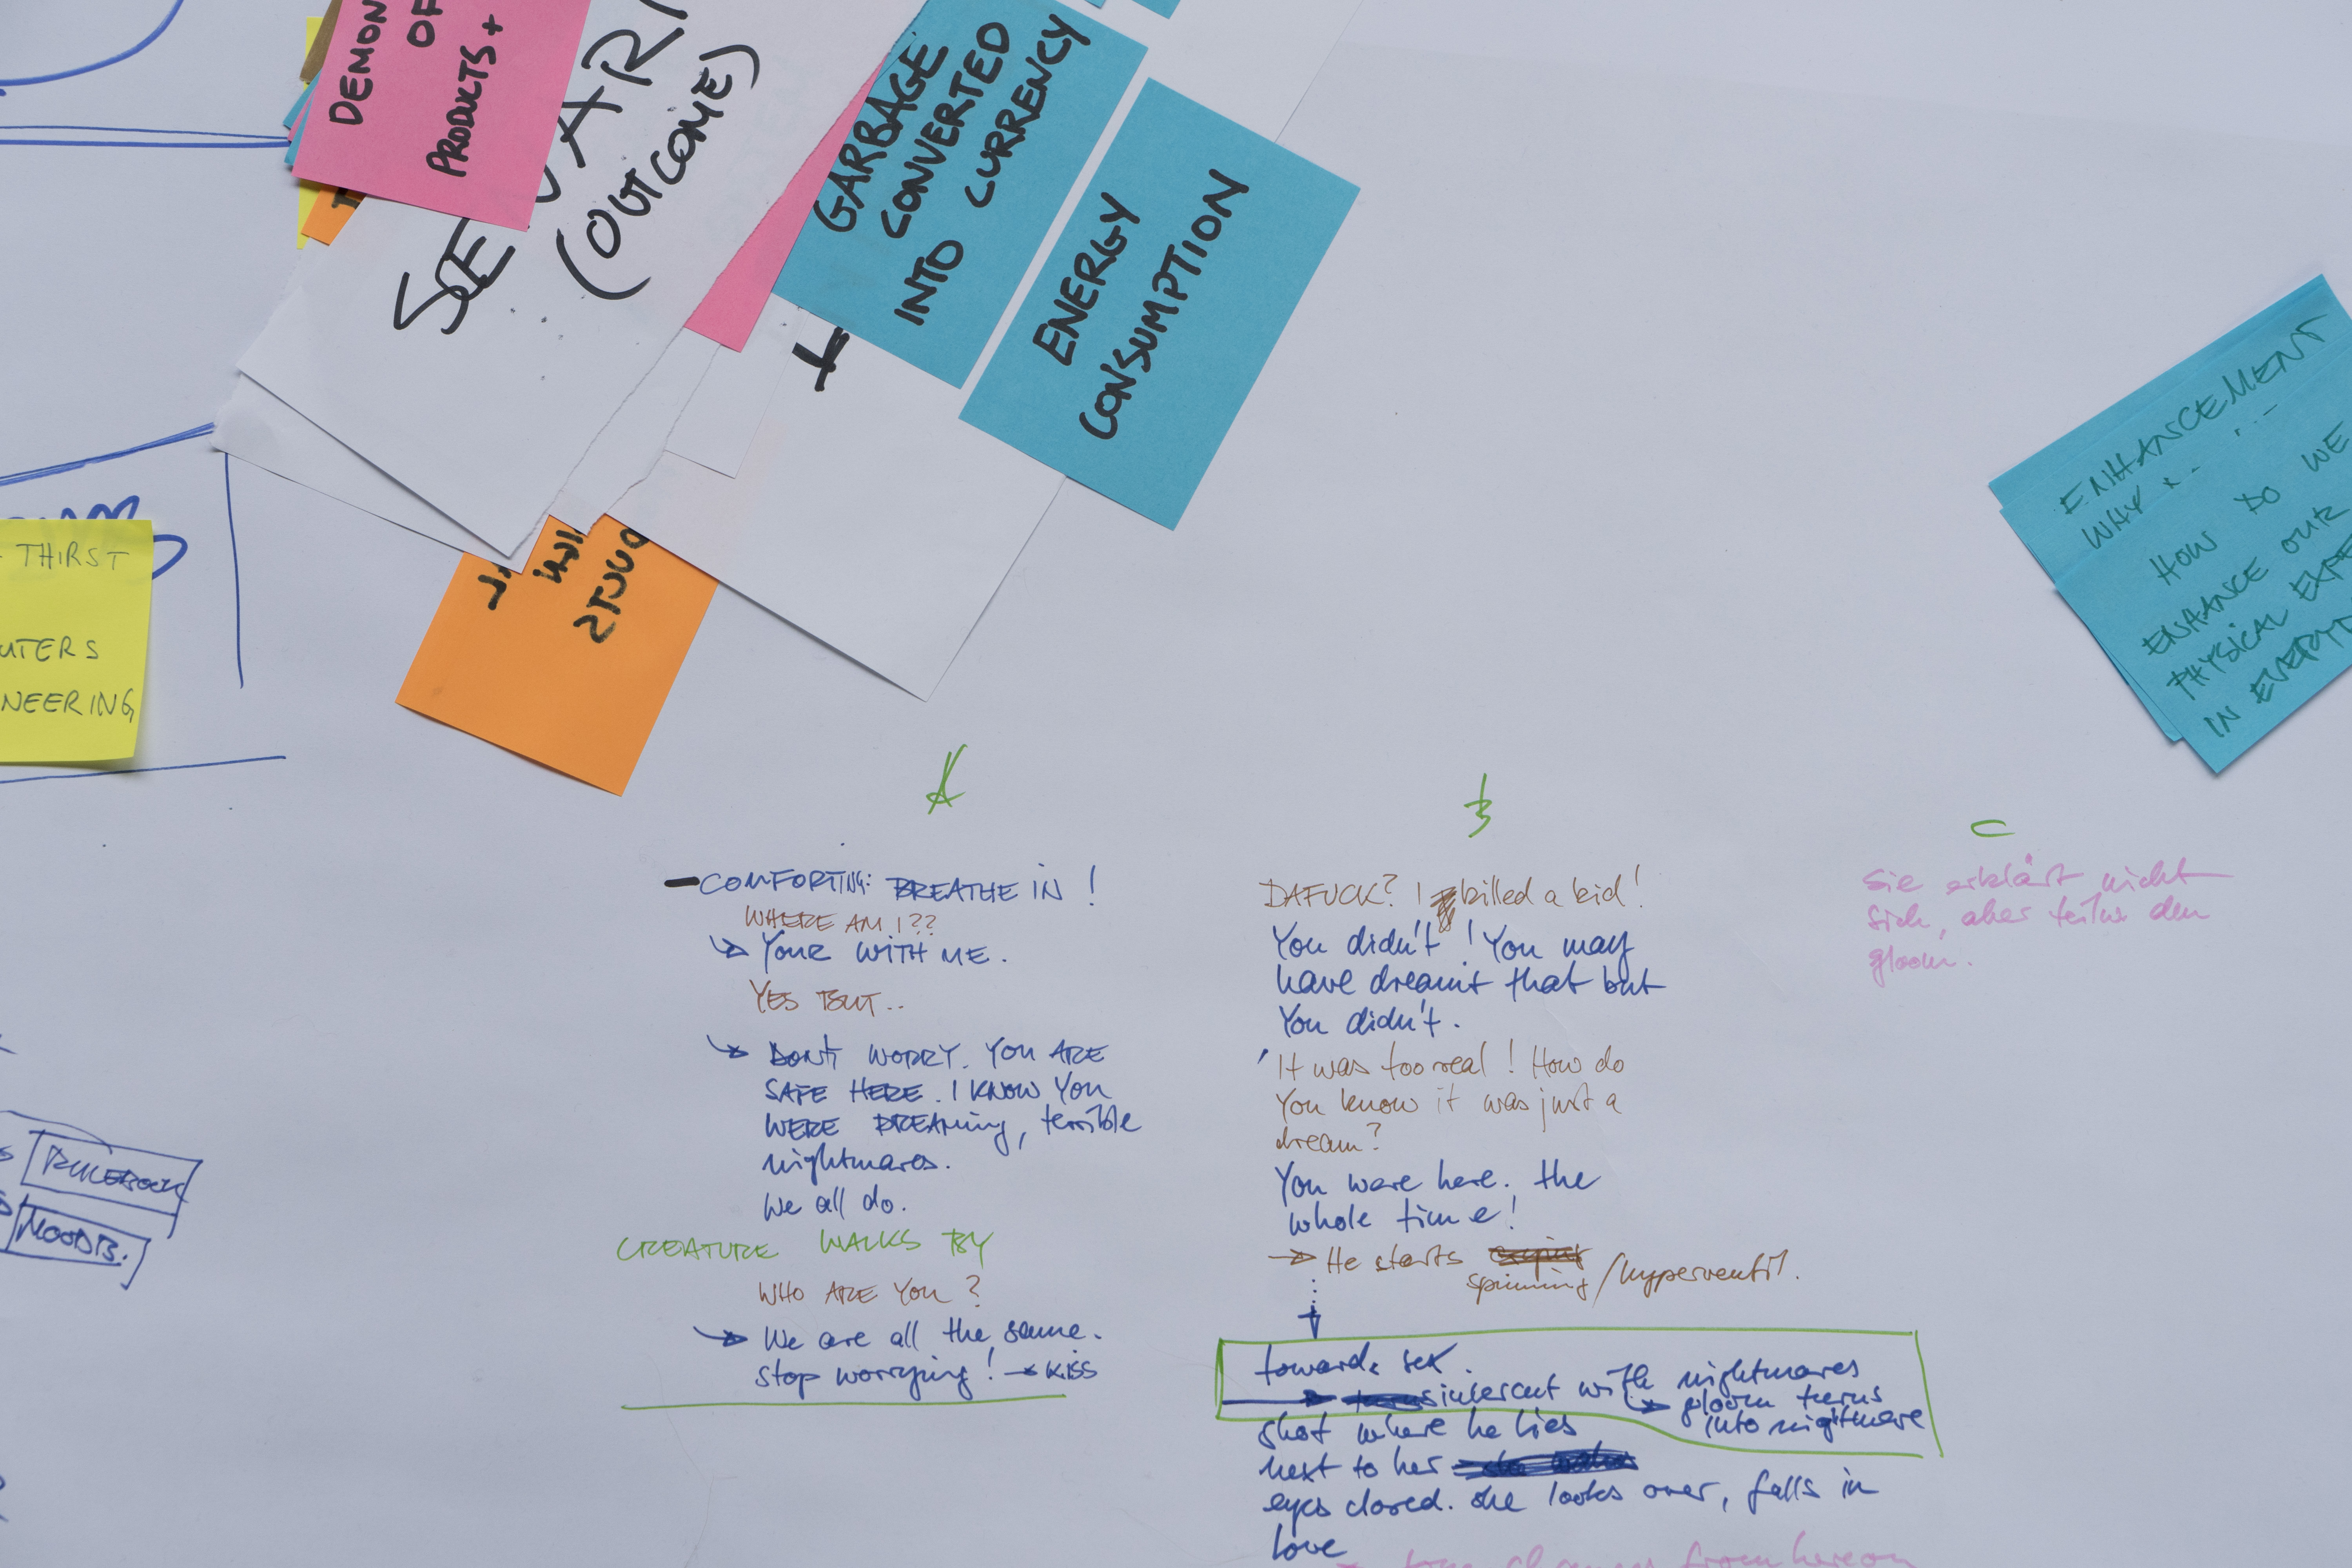 DEMON
OF
PRODUCTS +
(OUTCOME)
GARBAGE
CONVERTED
INTO CURRENCY
ENERGY
CONSUMPTION
ENHANCEMENT
WHY
HOW DO WE
ENHANCE OUR
PHYSICAL EXPE
IN EVERYD
THIRST
UTERS
NEERING
DUCTS
RULEBOOK
MOODB.
A
COMFORTING: BREATHE IN!
WHERE AM I??
YOUR WITH ME.
YES BUT..
DONT WORRY. YOU ARE
SAFE HERE. I KNOW YOU
WERE DREAMing, terrible
nightmares.
We all do.
CREATURE WALKS BY
WHO ARE YOU?
We are all the same.
stop worrying! → KISS
B
DAFUCK? I killed a kid!
You didn't! You may
have dreamt that but
You didn't.
It was too real! How do
You know it was just a
dream?
You were here. the
whole time!
→ He starts
spinning/hyperventil.
towards sex.
intercut with nightmares
gloom turns
into nightmare
shot where he lies
next to her
eyes closed. she looks over, falls in
love
C
Sie erklärt nicht
sich, aber den
gloom.
from hereon